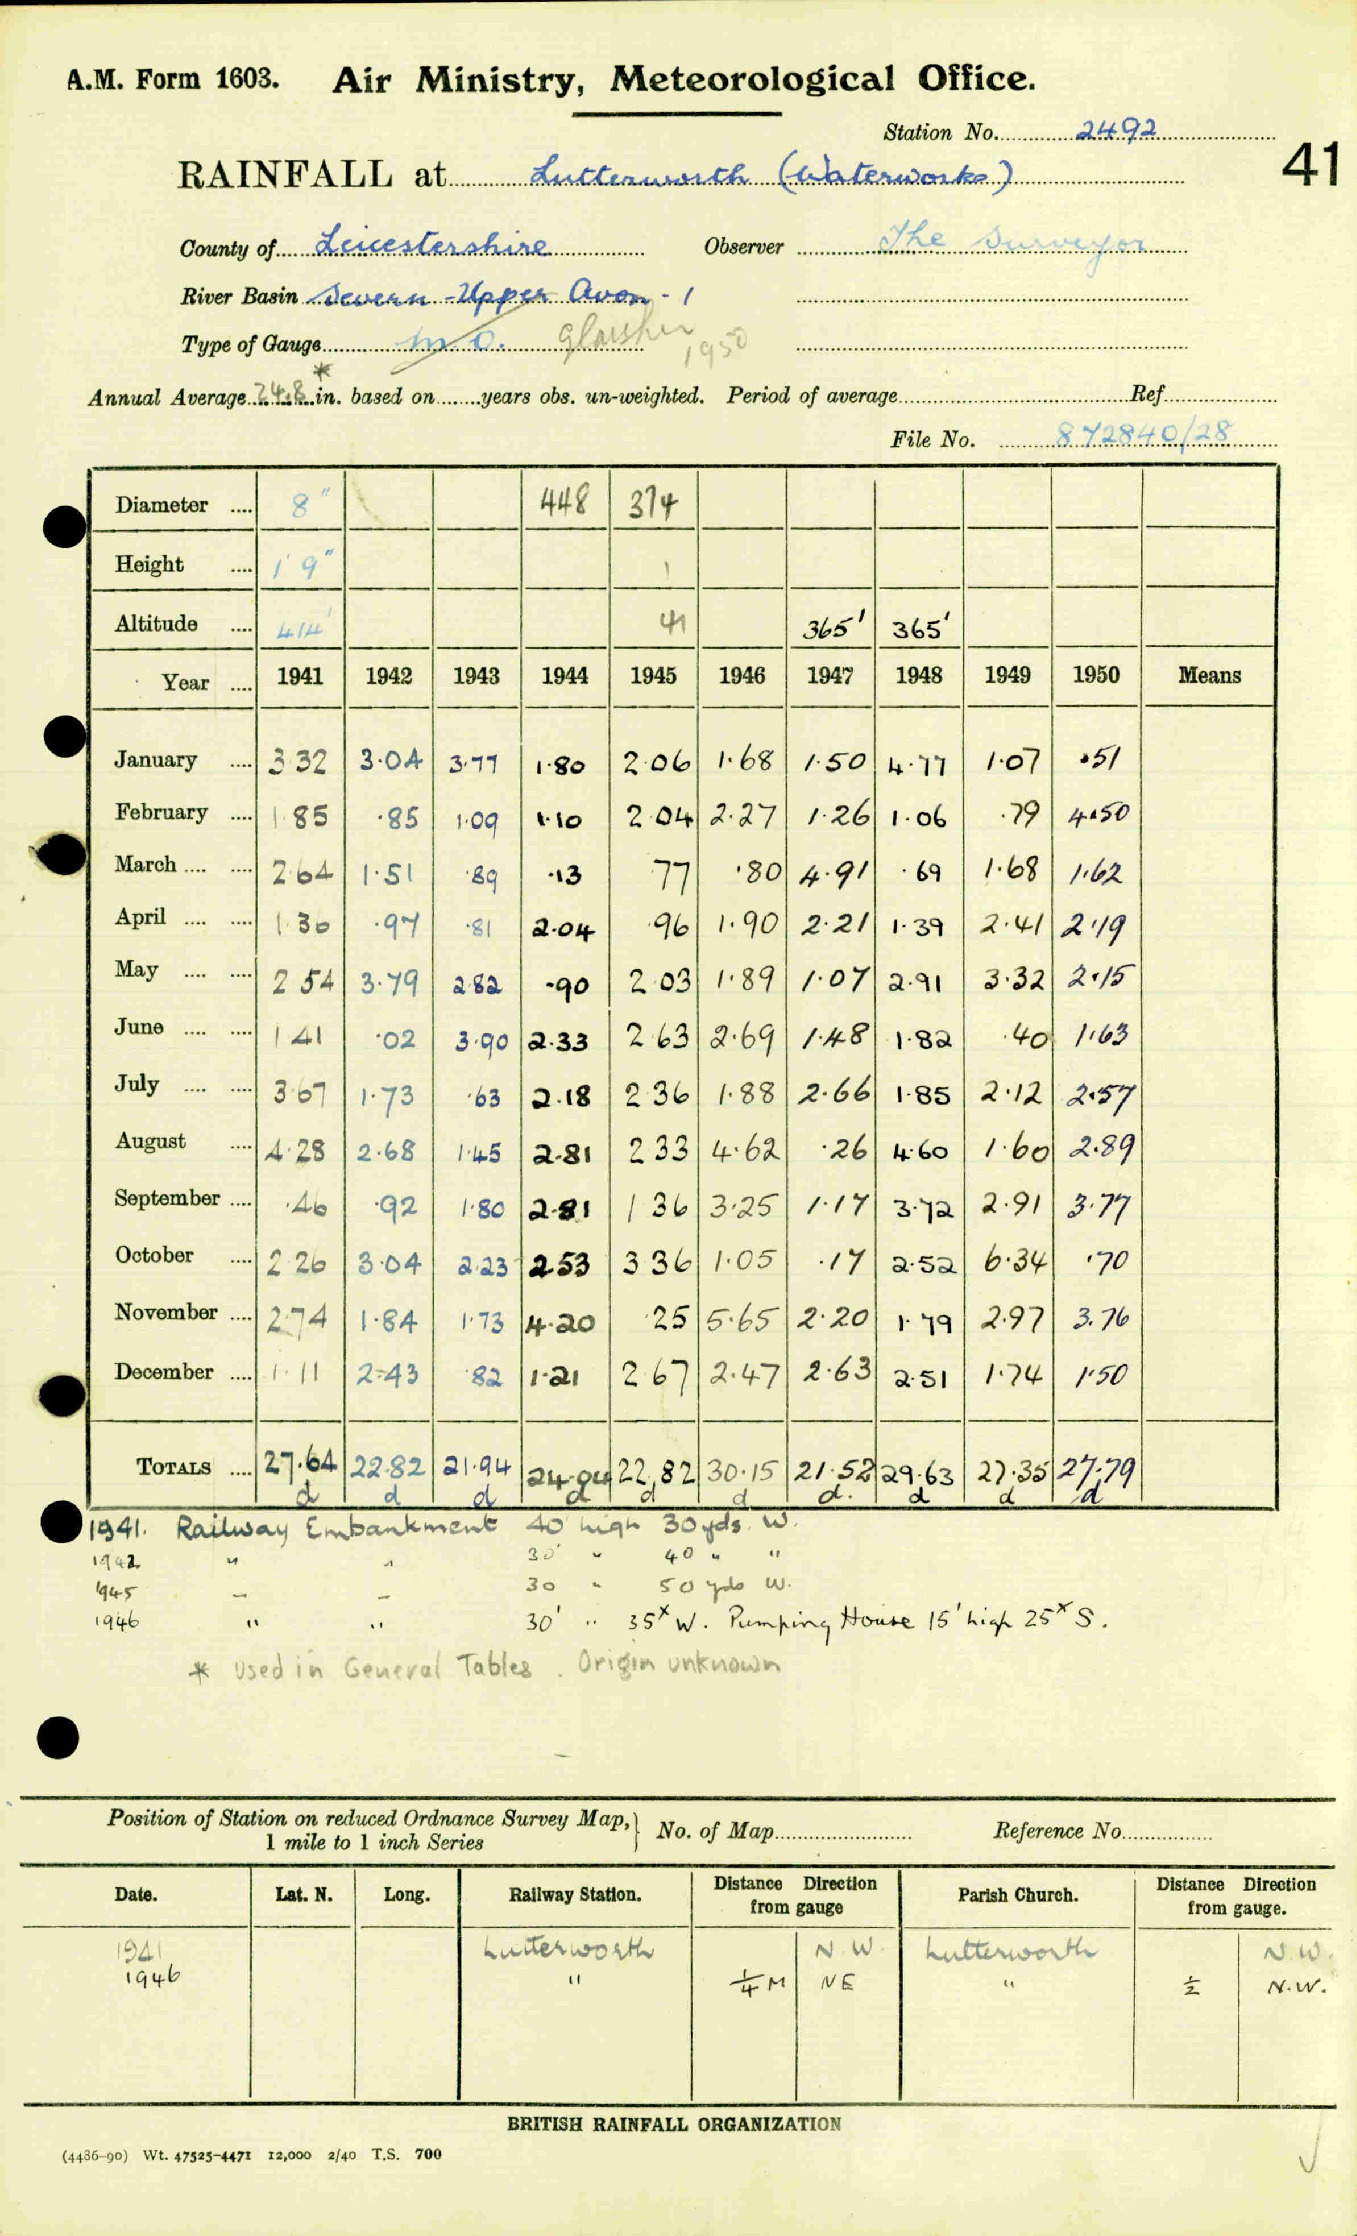 A.M. Form 1603. Air Ministry, Meteorological Office.
Station No. 2492
41
RAINFALL at Lutterworth (Waterworks)
County of Leicestershire Observer The Surveyor
River Basin Severn - Upper Avon - 1
Type of Gauge M.O. Glaisher 1950
Annual Average 24.8* in. based on years obs. un-weighted. Period of average Ref.
File No. 872840/28
Diameter 8" 448 374
Height 1' 9" 1
Altitude 414' 41 365' 365'
Year 1941 1942 1943 1944 1945 1946 1947 1948 1949 1950 Means
January 3.32 3.04 3.77 1.80 2.06 1.68 1.50 4.77 1.07 .51
February 1.85 .85 1.09 1.10 2.04 2.27 1.26 1.06 .79 4.50
March 2.64 1.51 .89 .13 77 .80 4.91 .69 1.68 1.62
April 1.36 .97 .81 2.04 .96 1.90 2.21 1.39 2.41 2.19
May 2 54 3.79 2.82 .90 2.03 1.89 1.07 2.91 3.32 2.15
June 1 41 .02 3.90 2.33 2 63 2.69 1.48 1.82 .40 1.63
July 3.67 1.73 .63 2.18 2 36 1.88 2.66 1.85 2.12 2.57
August 4.28 2.68 1.45 2.81 2 33 4.62 .26 4.60 1.60 2.89
September .46 .92 1.80 2.81 1 36 3.25 1.17 3.72 2.91 3.77
October 2 26 3.04 2.23 2.53 3 36 1.05 .17 2.52 6.34 .70
November 2.74 1.84 1.73 4.20 .25 5.65 2.20 1.79 2.97 3.76
December 1.11 2.43 .82 1.21 2 67 2.47 2.63 2.51 1.74 1.50
TOTALS 27.64 22.82 21.94 24.04 22.82 30.15 21.52 29.63 27.35 27.79
d d d d d d d. d d d
1941. Railway Embankment 40' high 30 yds. W.
1942 " " 30' " 40 " "
1945 " " 30 " 50 yds W.
1946 " " 30' " 35x W. Pumping House 15' high 25x S.
* Used in General Tables. Origin unknown
Position of Station on reduced Ordnance Survey Map, 1 mile to 1 inch Series } No. of Map Reference No.
Date. Lat. N. Long. Railway Station. Distance Direction from gauge Parish Church. Distance Direction from gauge.
1941 Lutterworth N.W. Lutterworth N.W.
1946 " ¼ M NE " ½ N.W.
BRITISH RAINFALL ORGANIZATION
(4486-90) Wt. 47525-4471 12,000 2/40 T.S. 700